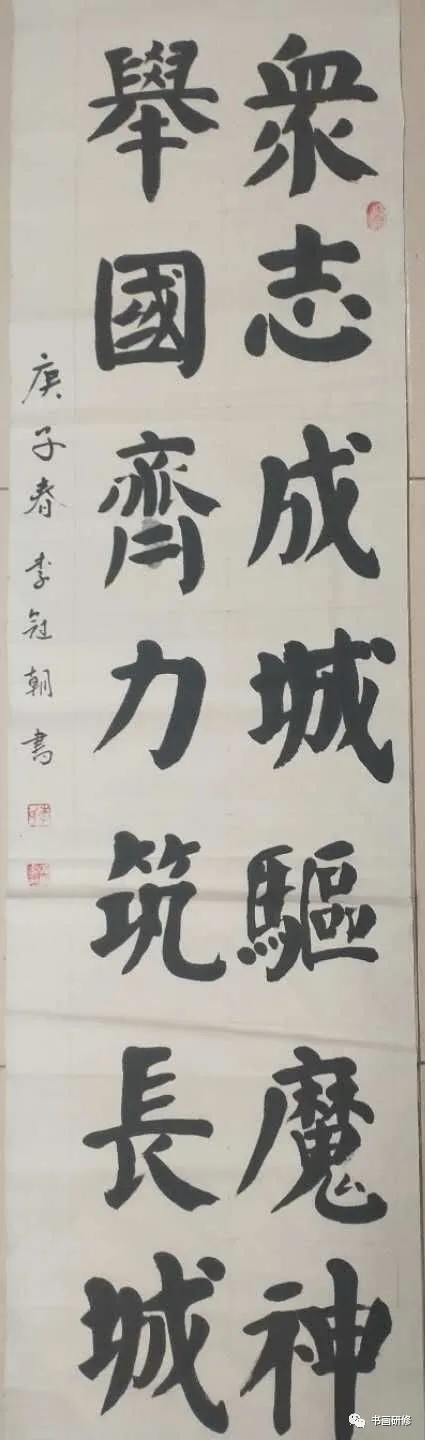 衆志成城驅魔神
舉國齊力筑長城
庚子春李冠朝書
书画研修